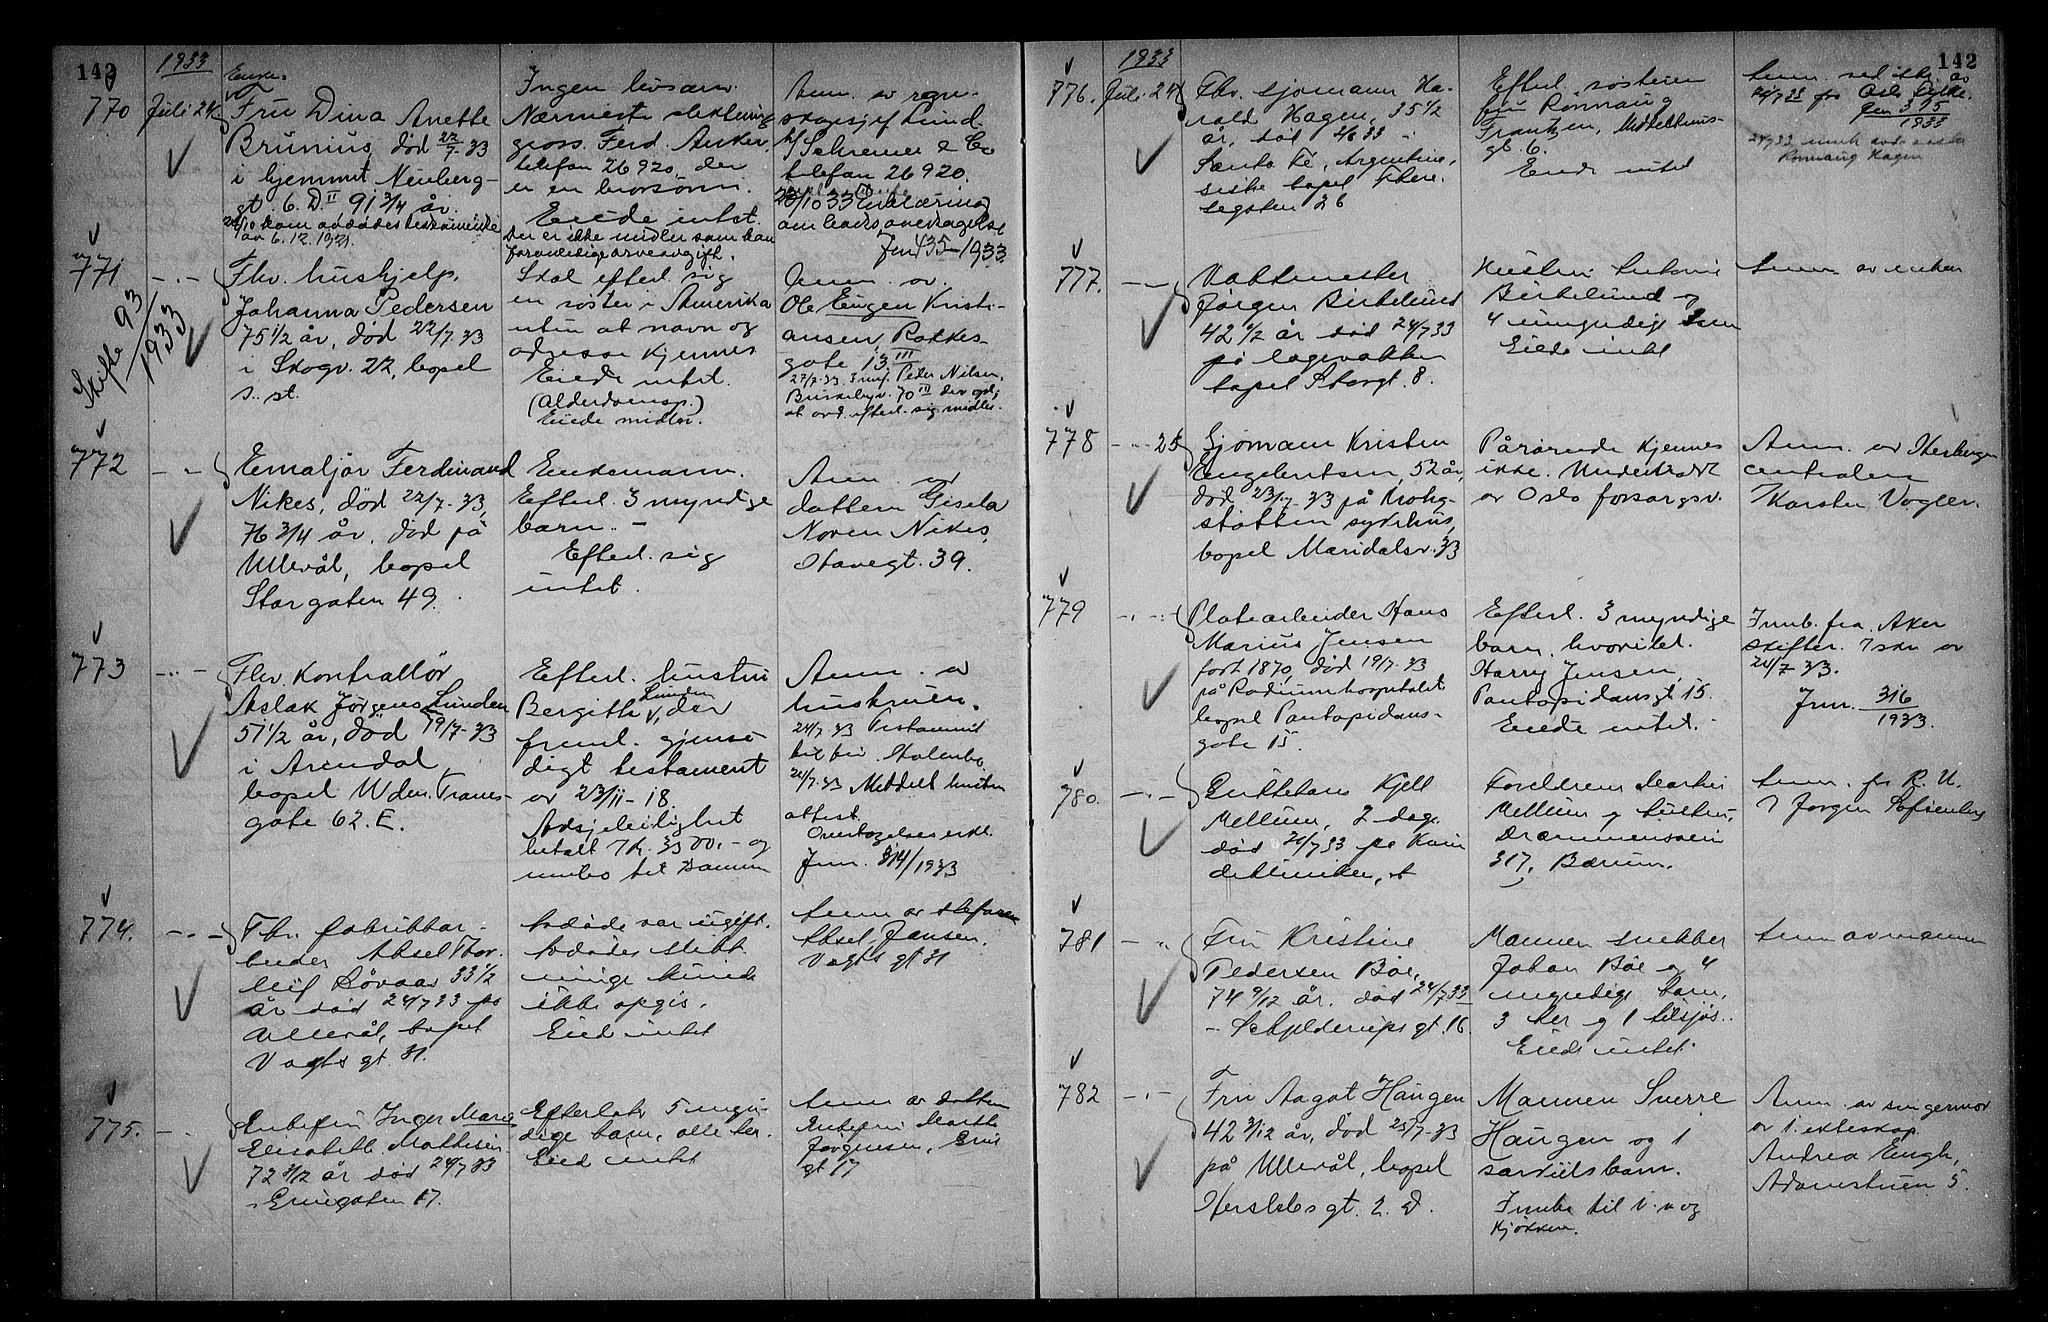 142
1933
770
Juli 24.
Enke.
Fru Dina Anette
Brunius, død 22/7-33
i hjemmet Neuberg-
gt. 6. D. II 91 3/4 år.
av 6.12.1921.
Ingen livsarv.
Nærmeste slektning
gross. Ferd. Anker,
telefon 26920, der
er en brorsønn.
Eiede intet.
Der er ikke midler som kan
Anm. av regn-
skapssjef Lund
Schreiner & Co
telefon 26920.
Erklæring
om boets overtagelse
Jnr 435-1933.
771
Skifte 93/1933
Fhv. hushjelp,
Johanna Pedersen
75 1/2 år, død 22/7-33
i Skogv. 22, bopel
s. st.
Skal efterl. sig
en søster i Amerika
uten at navn og
adresse kjennes
Eiede intet.
(Alderdomsp.)
Eiede midler.
Anm. av
Ole Eugen Kristi-
ansen, Rakkes-
gate 13 III
27/7-33. Peder Nilsen,
70 III
at avd. efterl. sig midler.
772
Emaljør Ferdinand
Nikes, død 22/7-33,
76 3/4 år, død på
Ullevål, bopel
Storgaten 49.
Enkemann.
Efterl. 3 myndige
barn. -
Efterl. sig
intet.
Anm. av
datteren Gisela
Noren Nikes,
gt. 39.
773
Fhv. Kontrollør
Aslak Jørgens. Lunden
51 1/2 år, død 19/7-33
i Arendal,
bopel Wdm. Tranes-
gate 62. E.
Efterl. hustru
Bergithe Lunden, der
freml. gjensi-
digt testament
av 23/11-18.
Adsjeleilighet
betalt 7 k. 3500,- og
innbo
Anm. av
hustruen.
24/7-33 Testament
24/7-33 Meddelt hustru
attest.
Overtagelseserkl.
Jnr. 314/1933
774.
Fhv. fabrikkar-
beider Aksel Thor-
leif Løvaas 33 1/2
år død 24/7 33 på
Ullevål, bopel
Vogts gt 31.
Avdøde var ugift.
Avdødes slekt-
ninge kunde
ikke opgis.
Eied intet
Anm av stefaren
Aksel Jansen,
Vogts gt 31
775.
Enkefru Inger Marie
Elisabeth Mathisen
72 3/12 år død 24/7 33
17
Efterlot 5 myn-
dige barn, alle her.
Eied intet
Anm av datteren
Enkefru Marth
Jørgensen,
gt 17
142
1933
776.
Juli 24
Fhv. sjømann Ha-
rald Hagen, 35 1/2
år, død 2/6 33 i
Santa Fe, Argentina,
siste bopel There-
sesgaten 26
Efterl. søsteren
fru Ronnaug
Frantzen, Middelthuns-
gt. 6.
Eiede intet
Anm. ved skr. av
24/7 33 fra Oslo Fylke.
Jnr 315/1933
Ronnaug Hagen
777.
Vaktmester
Jørgen Birkelund
42 1/2 år død 24/7 33
på legevakten
bopel Storgt. 8.
Hustru
Birkelund og
4 umyndige barn
Eiede intet
Anm av enken
778
25
Sjømann Kristen
Engebretsen, 52 år,
død 23/7-33 på Krohg-
støtten sykehus,
bopel Maridalsv. 33
Pårørende kjennes
ikke. Understøttet
av Oslo forsorgsv.
Anm. av Herberge
centralen
Karsten Vogler.
779
Platearbeider Hans
Marius Jensen
født 1870, død 19/7-33
på Radiumhospitalet
bopel Pontopidans-
gate 15.
Efterl. 3 myndige
barn, hvoriblt.
Harry Jensen,
Pontopidansgt 15.
Eiede intet.
Innb. fra Aker
skifter. 7 skr av
24/7 33.
Jnr. 316/1933.
780.
Guttebarn Kjell
Mellum, 2 dage
død 24/7 33 på Kvin
deklinikken,
Foreldrene Martin
Mellum og hustru,
Drammensveien
317, Bærum.
Anm. fra R. H.
v/ Jørgen
781
Fru Kristine
Pedersen Bøe,
74 9/12 år. død 24/7 33
Schjelderups gt. 16
Mannen snekker
Johan Bøe og 4
myndige barn,
3 her og 1 tilsjøs.
Eiede intet
Anm av mannen
782
Fru Aagot Haugen
42 3/12 år, død 25/7-33
på Ullevål, bopel
Herslebs gt. 2. D.
Mannen Sverre
Haugen og 1
særkulsbarn.
Innbo til 1. v og
kjøkken.
Anm. av svigermor
av 1. ekteskap
Andrea Engh,
Adamstuen 5.